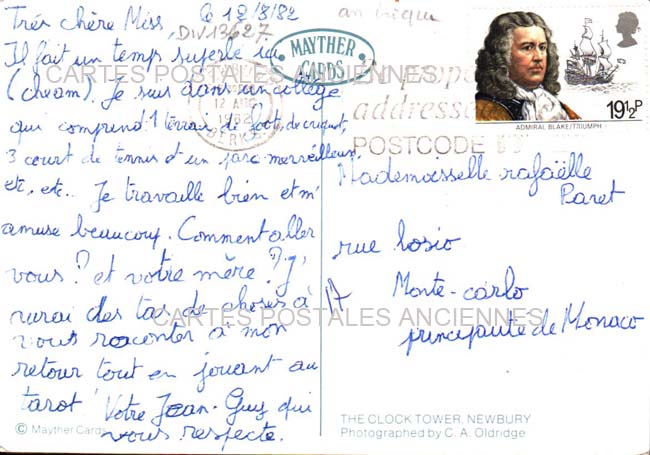 Très chère Miss,
le 12/8/82
DIV13627
Il fait un temps superbe ici
(cheam). Je suis dans un collège
qui comprend 1 terrain de foot, de criquet,
3 court de tennis et un parc merveilleux,
etc, etc.. Je travaille bien et m'
amuse beaucoup. Comment aller
vous? et votre mère? J'
aurai des tas de choses à
vous raconter à mon
retour tout en jouant au
tarot! Votre Jean-Guy qui
vous respecte.
© Mayther Cards
MAYTHER
CARDS
12 AUG
1982
addresse
POSTCODE
19½P
ADMIRAL BLAKE/TRIUMPH
Mademoisselle rafaëlle
Paret
17
rue bosio
Monte-carlo
principauté de Monaco
THE CLOCK TOWER, NEWBURY
Photographed by C. A. Oldridge
CARTES POSTALES ANCIENNES
CARTES POSTALES ANCIENNES